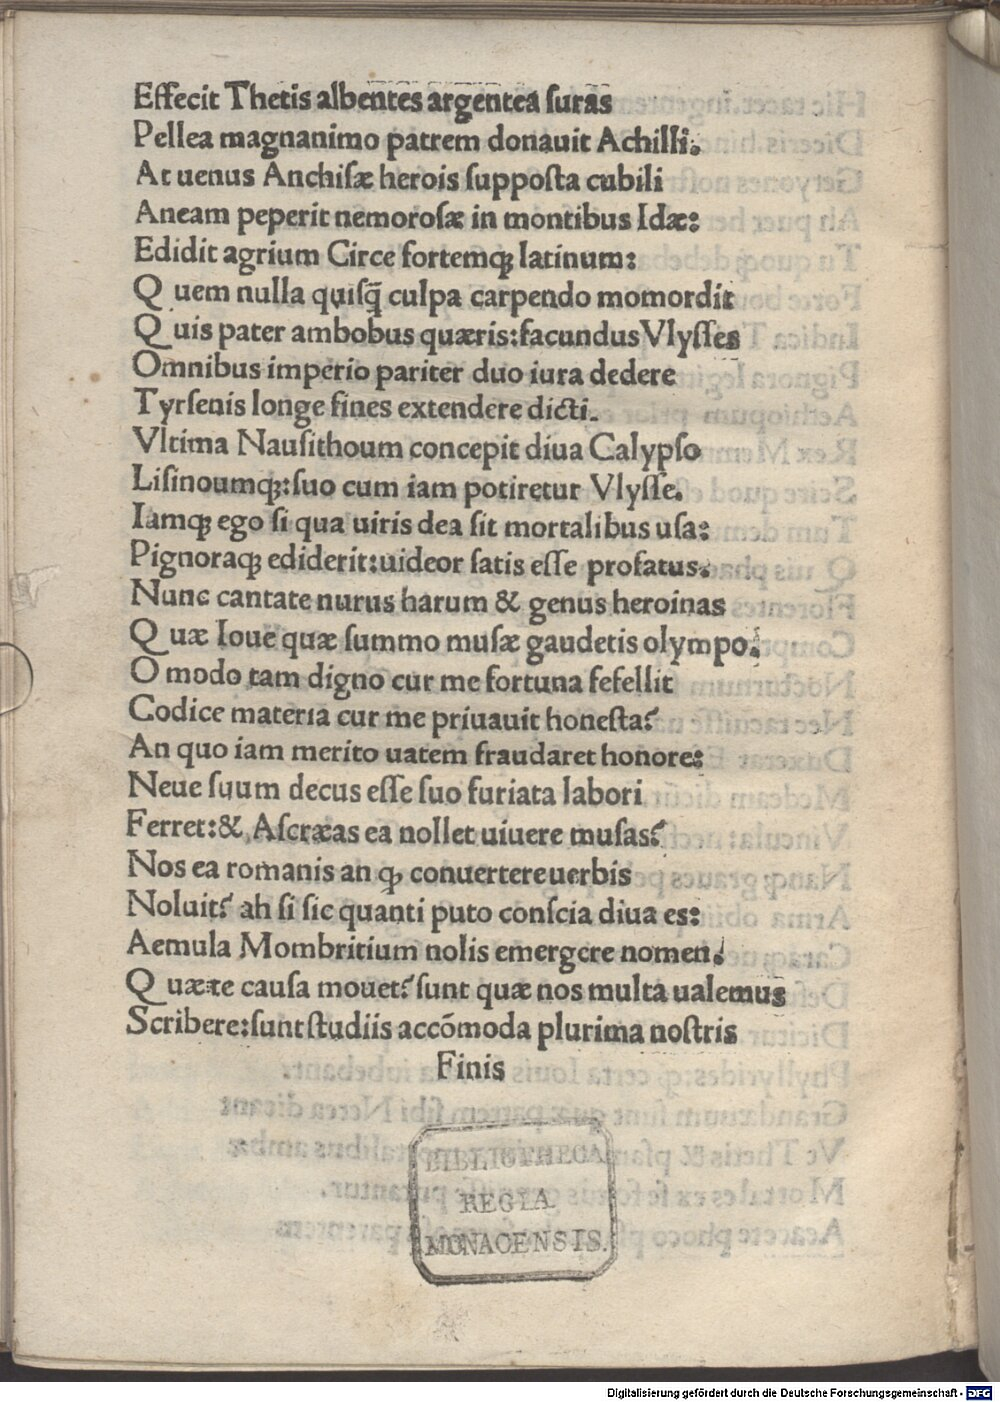 Effecit Thetis albentes argentea ſuras
Pellea magnanimo patrem donauit Achilli.
At uenus Anchiſæ herois ſuppoſta cubili
Aneam peperit nemoroſæ in montibus Idæ:
Edidit agrium Circe fortemqꝫ latinum:
Quem nulla quiſq̃ culpa carpendo momordit
Quis pater ambobus quæris:facundus Vlyſſes
Omnibus imperio pariter duo iura dedere
Tyrſenis longe fines extendere dicti.
Vltima Nauſithoum concepit diua Calypſo
Liſinoumqꝫ:ſuo cum iam potiretur Vlyſſe.
Iamqꝫ ego ſi qua uiris dea ſit mortalibus uſa:
Pignoraqꝫ ediderit:uideor ſatis eſſe profatus.
Nunc cantate nurus harum & genus heroinas
Quæ Ioue quæ ſummo muſæ gaudetis olympo.
O modo tam digno cur me fortuna fefellit
Codice materia cur me priuauit honeſta?
An quo iam merito uatem fraudaret honore:
Neue ſuum decus eſſe ſuo furiata labori
Ferret:& Aſcræas ea nollet uiuere muſas?
Nos ea romanis an qꝫ conuertere uerbis
Noluit? ah ſi ſic quanti puto conſcia diua es:
Aemula Mombritium nolis emergere nomen.
Quæ te cauſa mouet? ſunt quæ nos multa ualemus
Scribere:ſunt ſtudiis accōmoda plurima noſtris
Finis
BIBLIOTHECA
REGIA
MONACENSIS.
Digitalisierung gefördert durch die Deutsche Forschungsgemeinschaft - DFG